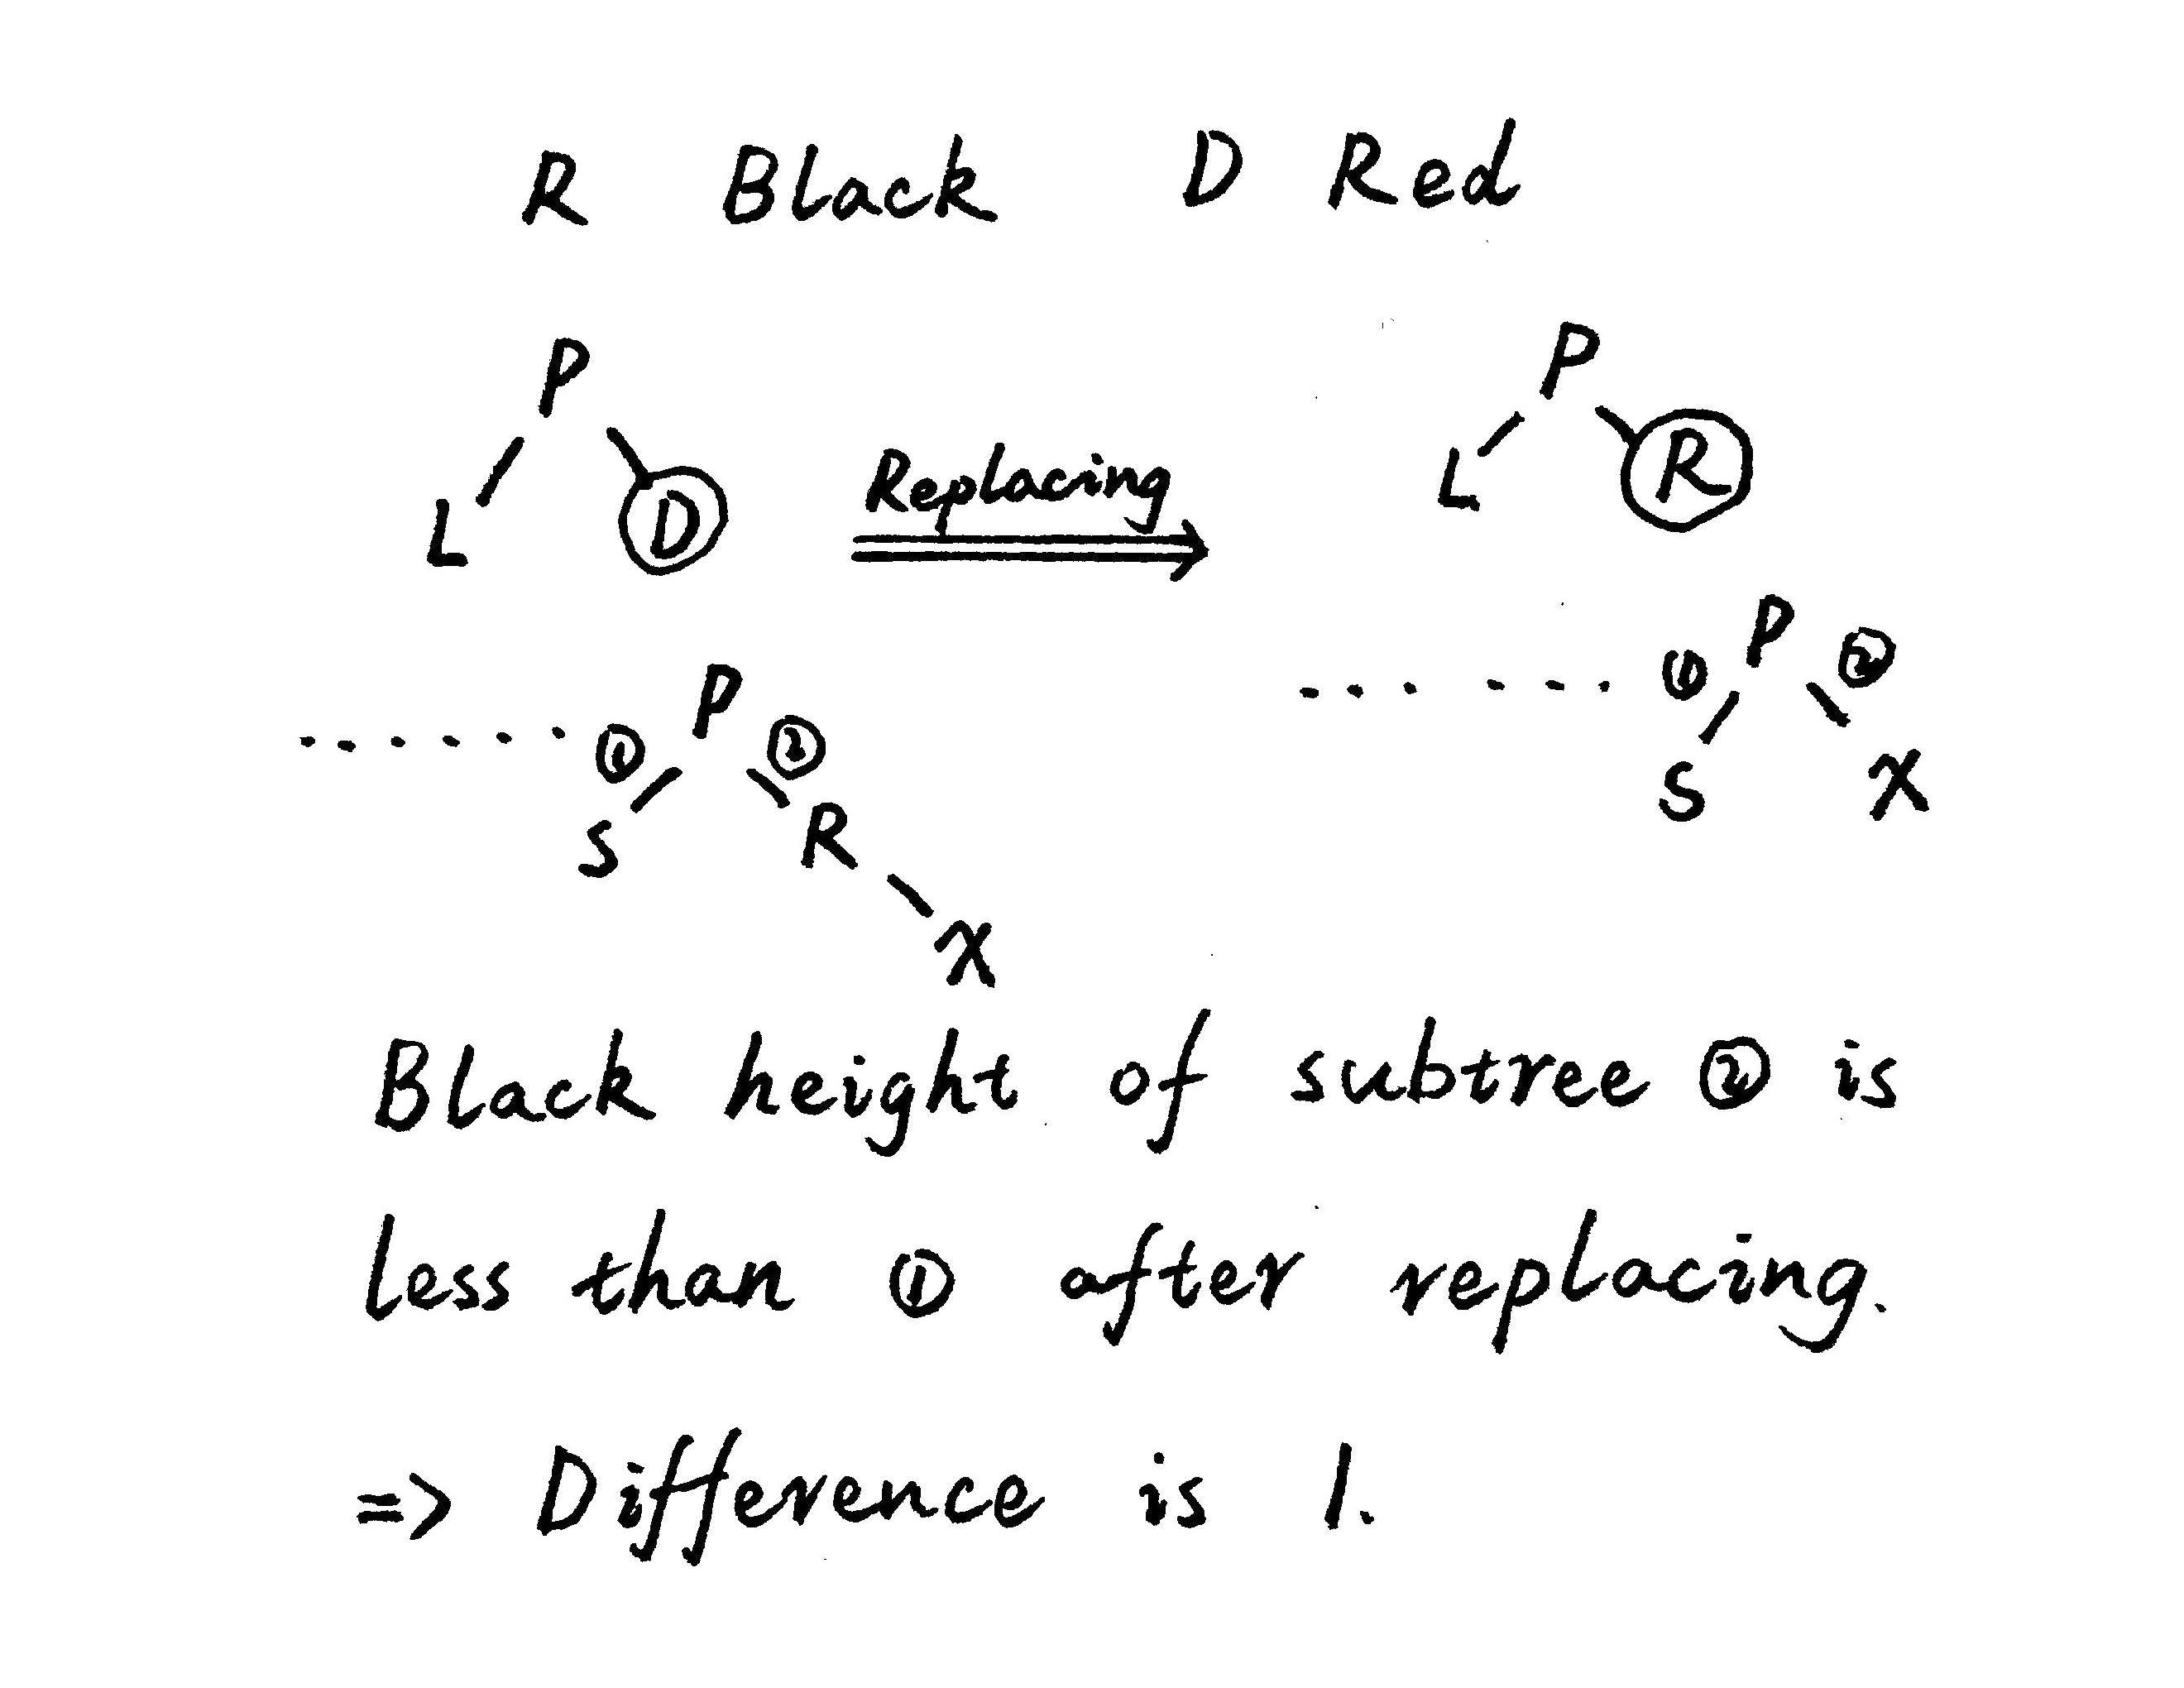 R Black D Red
P
L D
Replacing
P
L R
P
① ②
S R
X
P
① ②
S X
Black height of subtree ② is
less than ① after replacing.
=> Difference is 1.